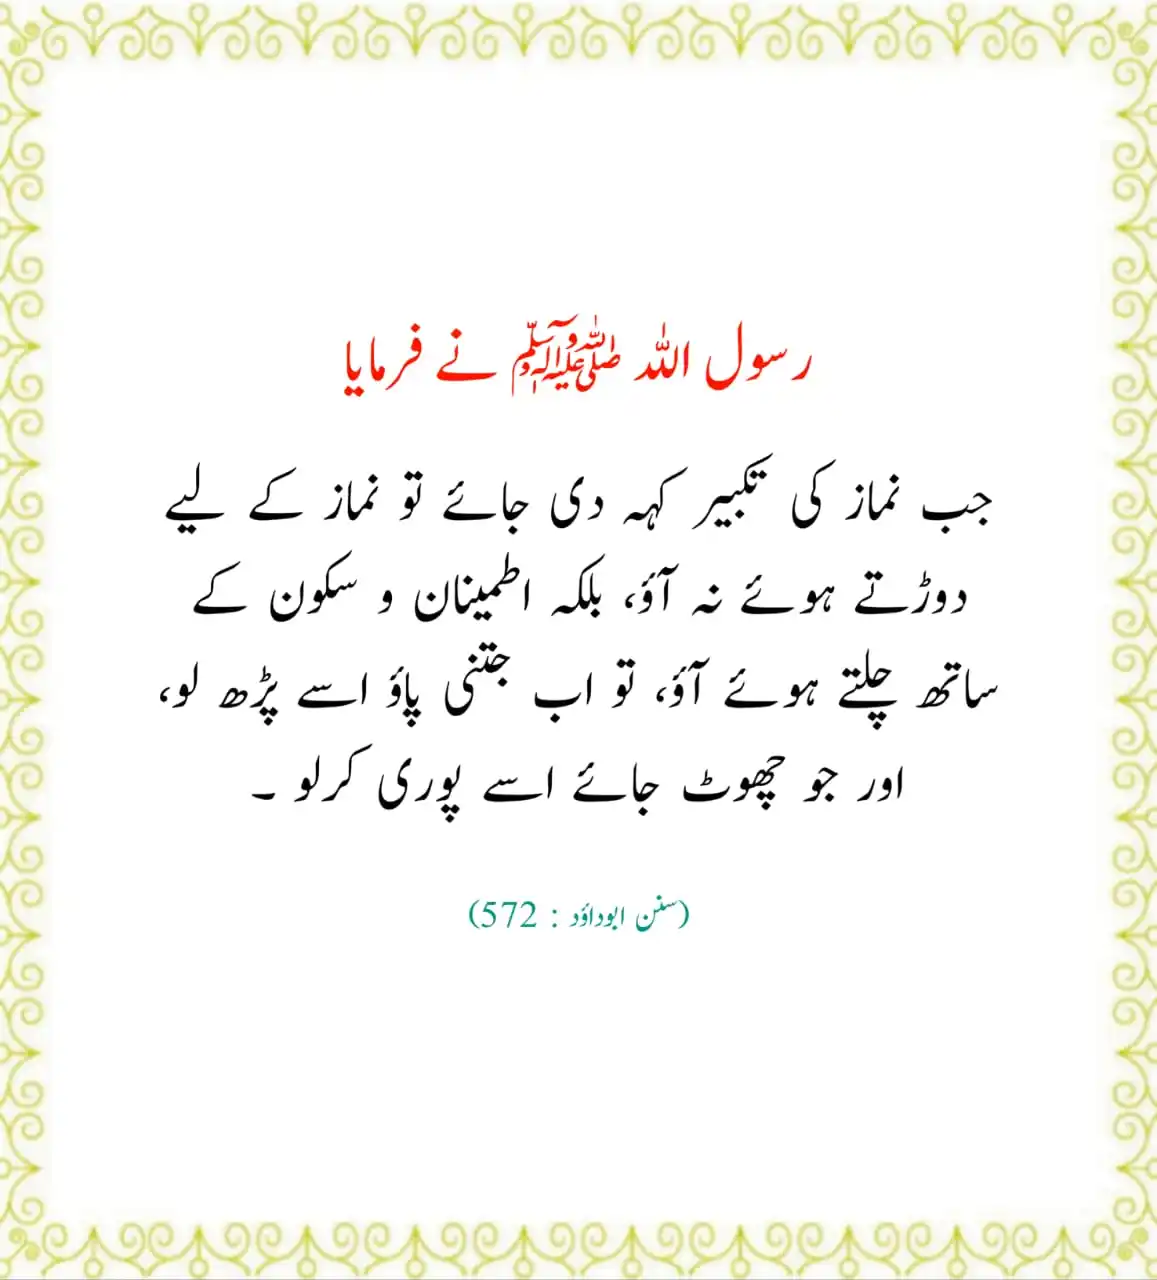 رسول اللہ ﷺ نے فرمایا
جب نماز کی تکبیر کہہ دی جائے تو نماز کے لیے
دوڑتے ہوئے نہ آؤ، بلکہ اطمینان و سکون کے
ساتھ چلتے ہوئے آؤ، تو اب جتنی پاؤ اسے پڑھ لو،
اور جو چھوٹ جائے اسے پوری کرلو ۔
(سنن ابوداؤد : 572)